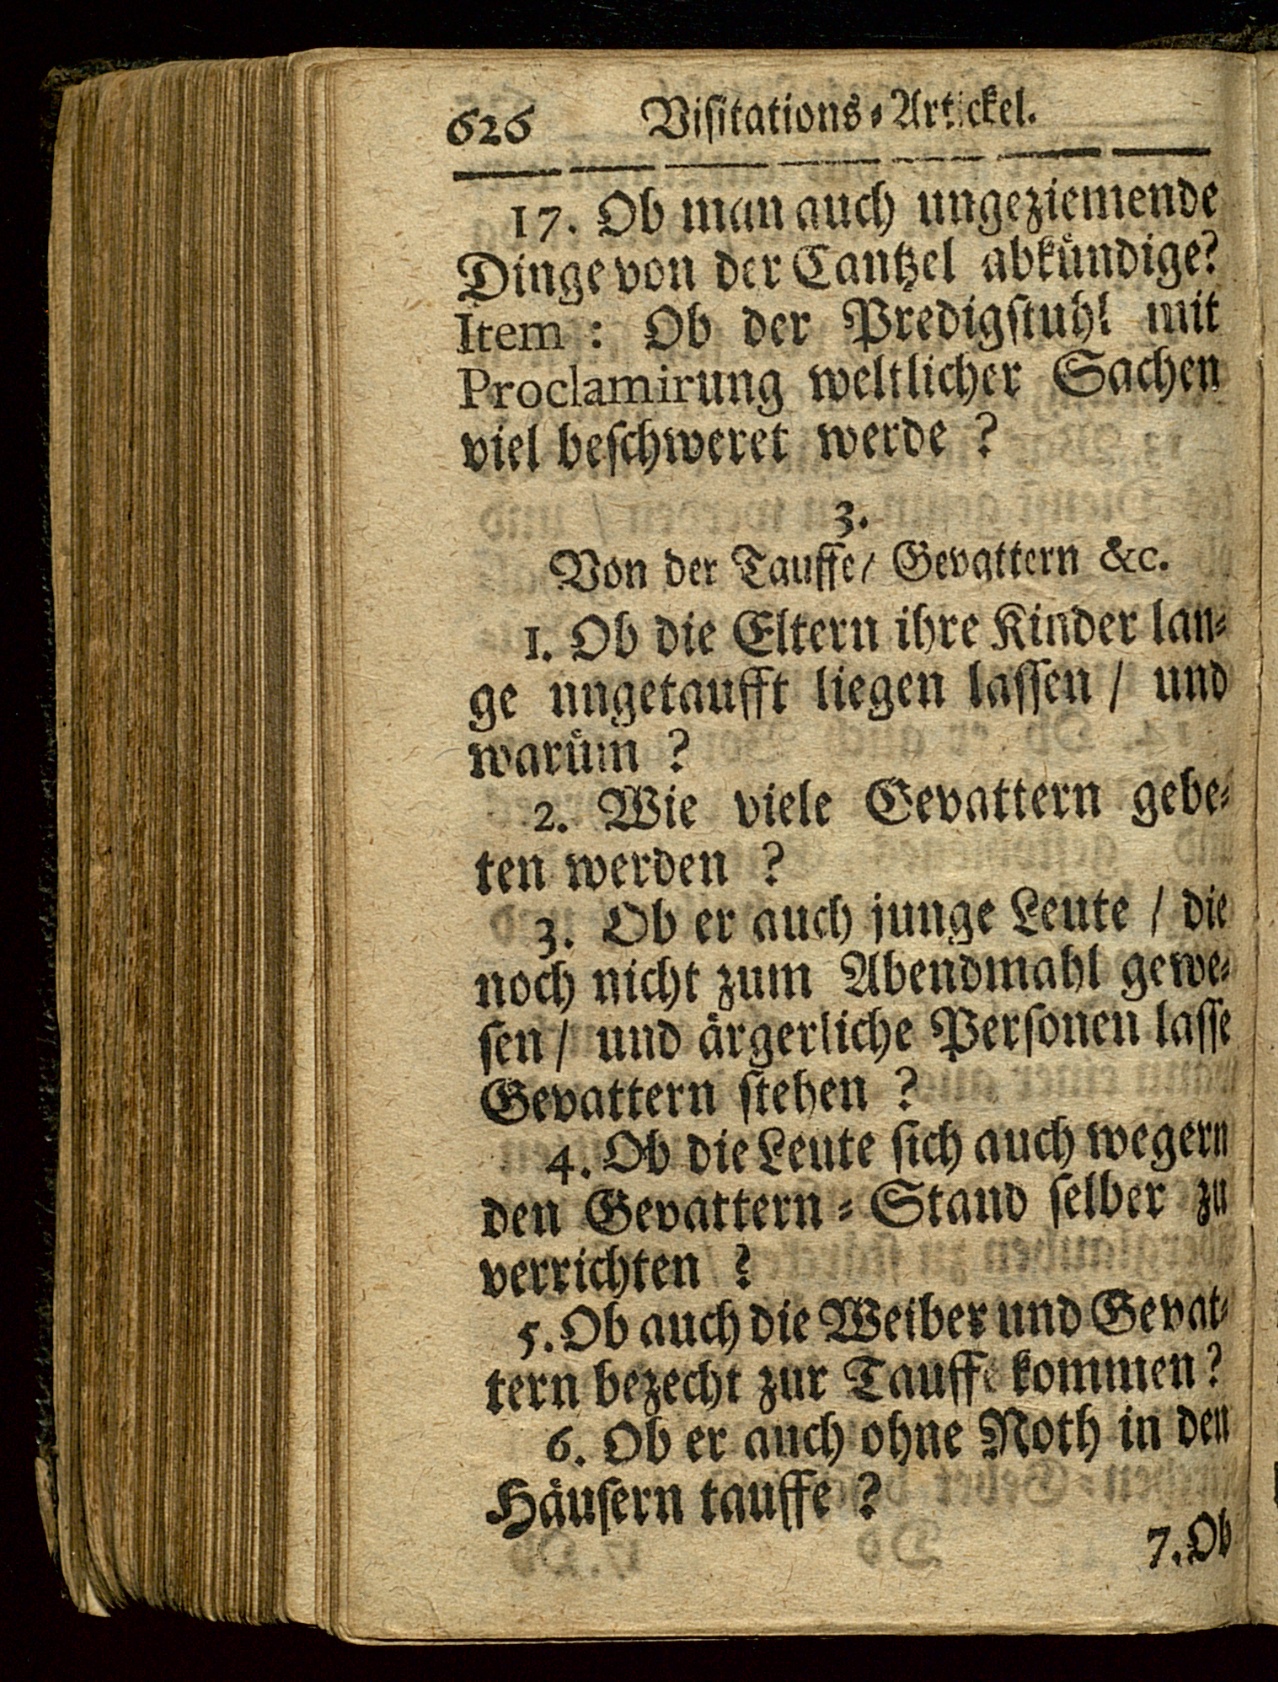 626 Visitations-Artickel.
17. Ob man auch ungeziemende
Dinge von der Cantzel abkündige?
Item : Ob der Predigstuhl mit
Proclamirung weltlicher Sachen
viel beschweret werde ?
3.
Von der Tauffe/ Gevattern &c.
1. Ob die Eltern ihre Kinder lan-
ge ungetaufft liegen lassen / und
warüm ?
2. Wie viele Gevattern gebe-
ten werden ?
3. Ob er auch junge Leute / die
noch nicht zum Abendmahl gewe-
sen / und ärgerliche Personen lasse
Gevattern stehen ?
4. Ob die Leute sich auch wegern
den Gevattern-Stand selber zu
verrichten ?
5. Ob auch die Weiber und Gevat-
tern bezecht zur Tauffe kommen?
6. Ob er auch ohne Noth in den
Häusern tauffe ?
7. Ob